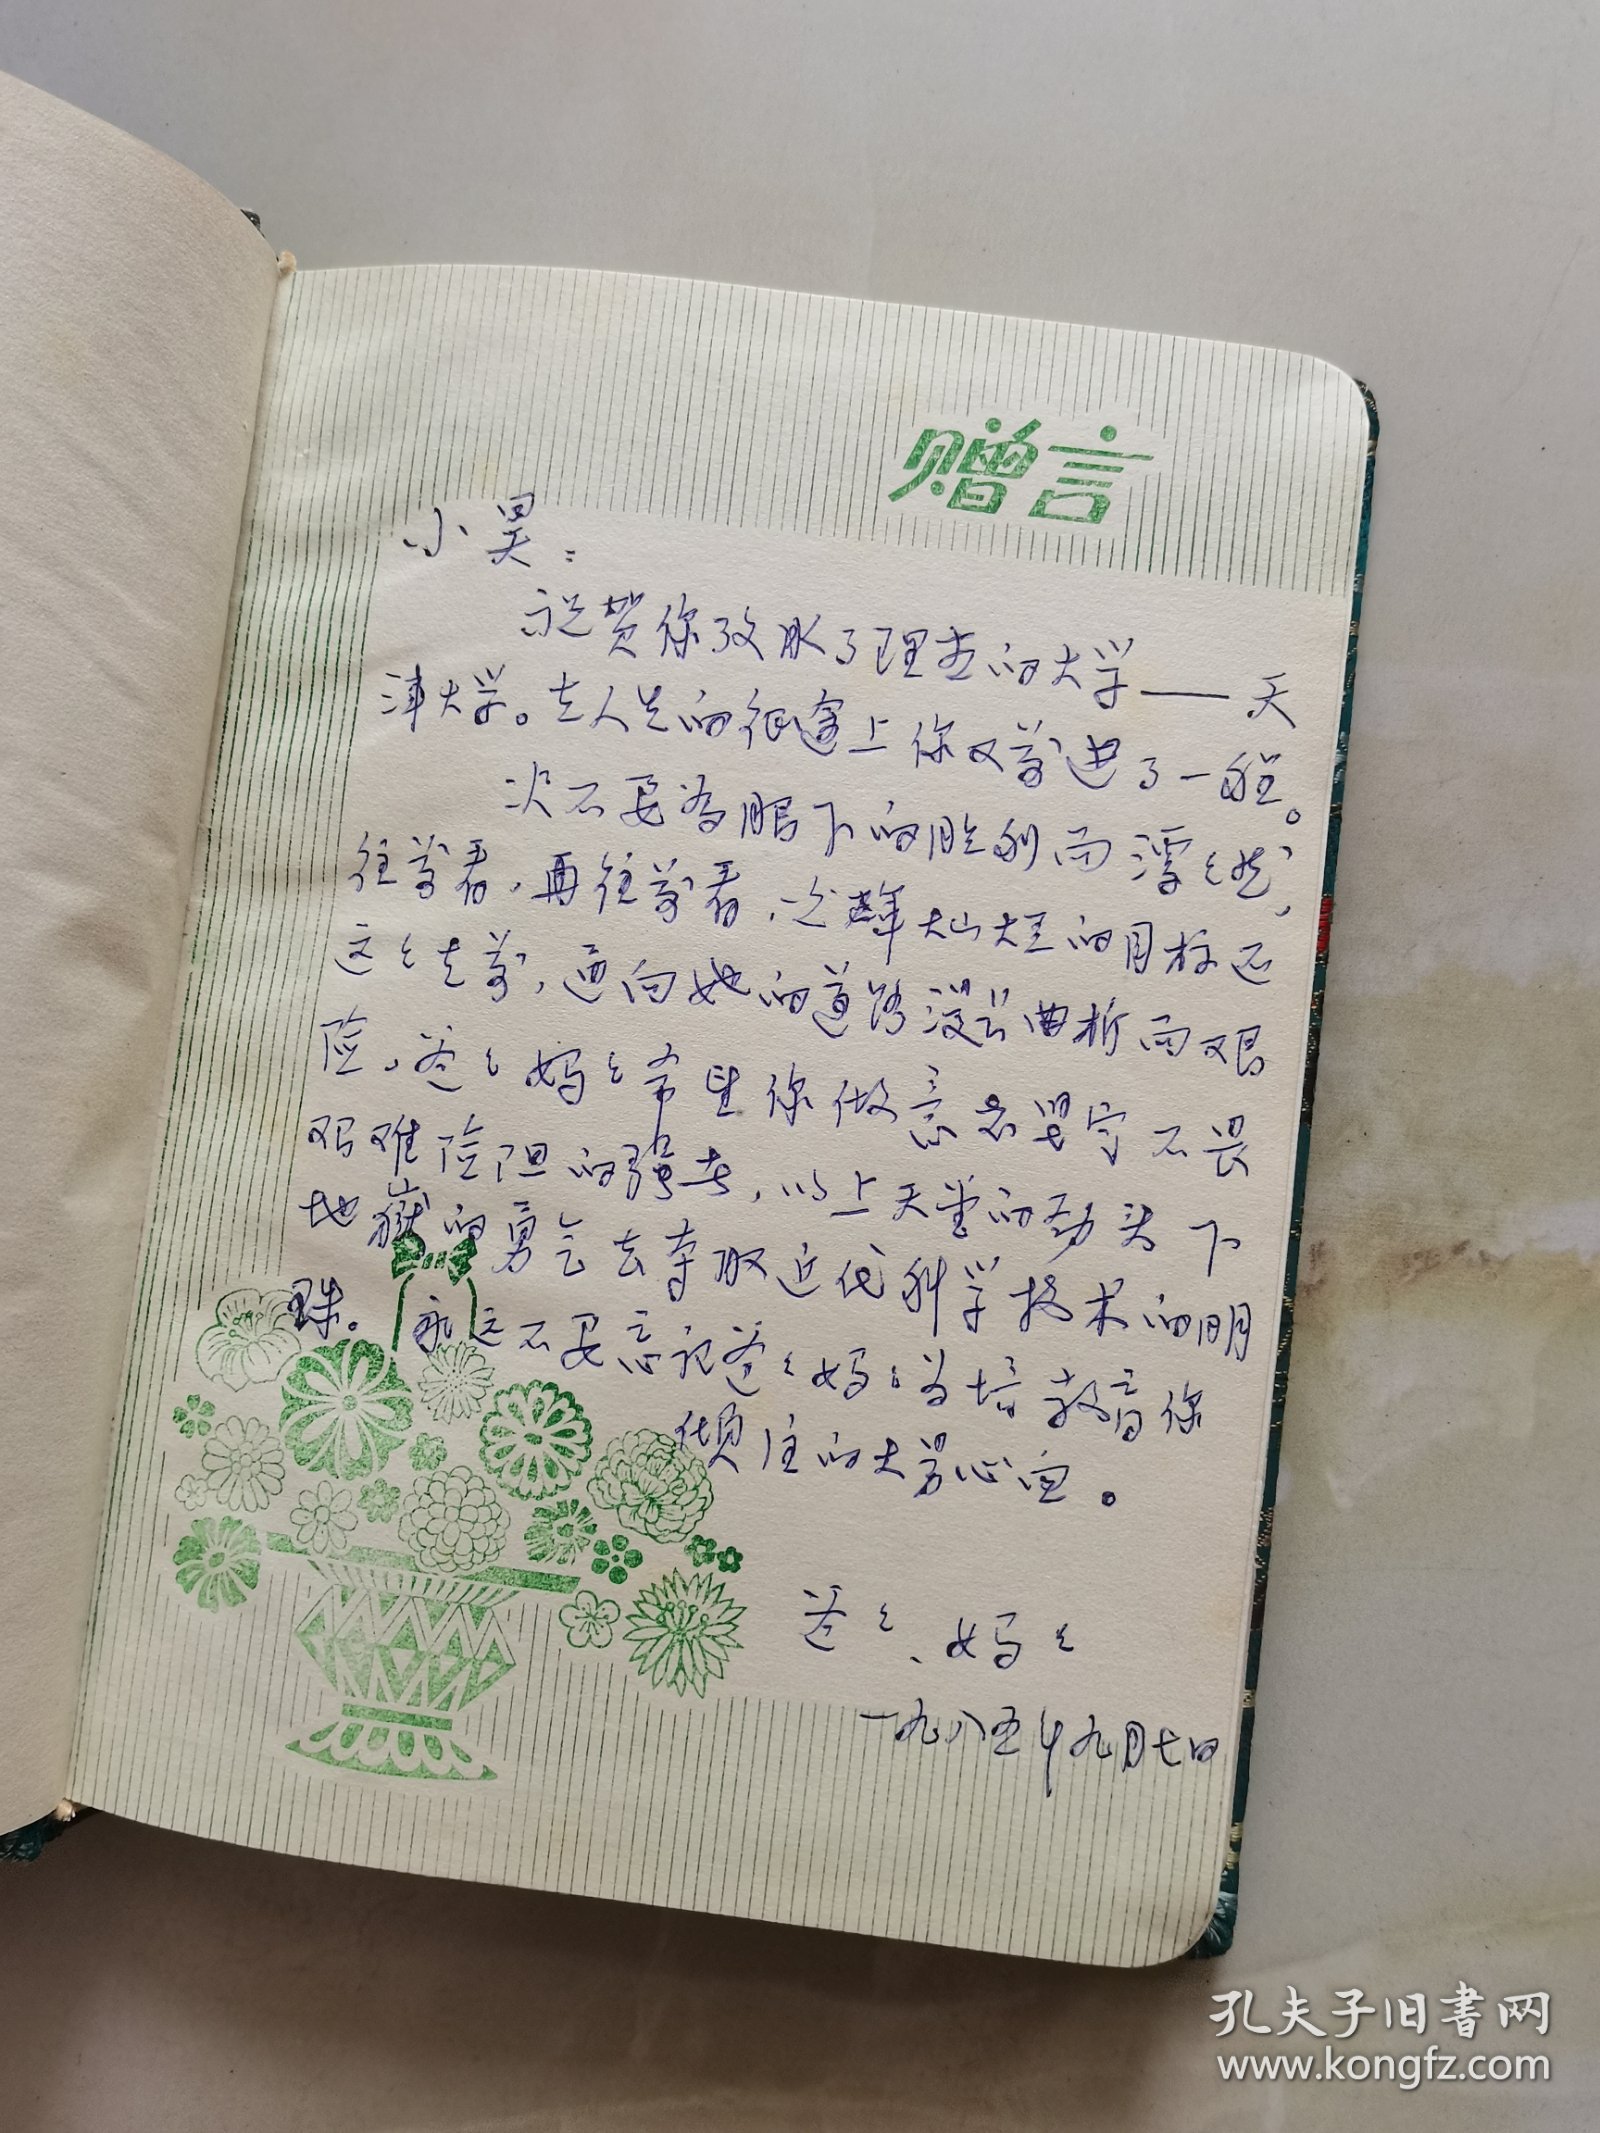 赠言
小昊：
祝贺你考取了理想的大学——天
津大学。在人生的征途上你又前进了一程。
次不要为眼下的胜利而漂々然，
往前看，再往前看，光辉灿烂的目标还
远々在前，通向她的道路漫长曲折而艰
险，爸々妈々希望你做意志坚守不畏
艰难险阻的强者，以上天堂的劲头下
地狱的勇气去夺取近代科学技术的明
珠。永远不要忘记爸々妈々为培教育你
倾注的大量心血。
爸々、妈々
一九八五年九月七日
孔夫子旧书网
www.kongfz.com